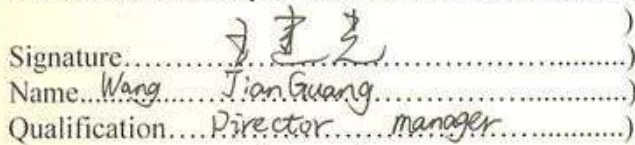 )
Signature....王建光....)
Name..Wang JianGuang....)
Qualification....Director manager....)